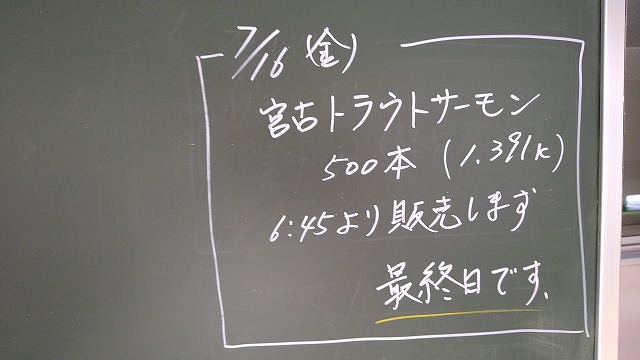 7/16(金)
宮古トラウトサーモン
500本(1.391K)
6:45より販売します
最終日です、